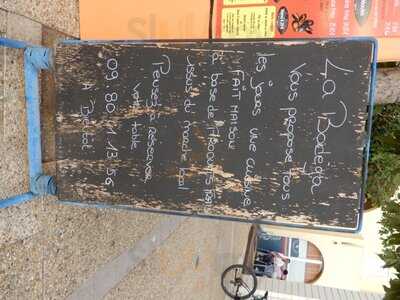 La Bodega
vous propose tous
les jours une cuisine
FAIT MAISON
à base de PRODUITS frais
issus du marché local
Pensez à réserver
votre table
A Bientôt